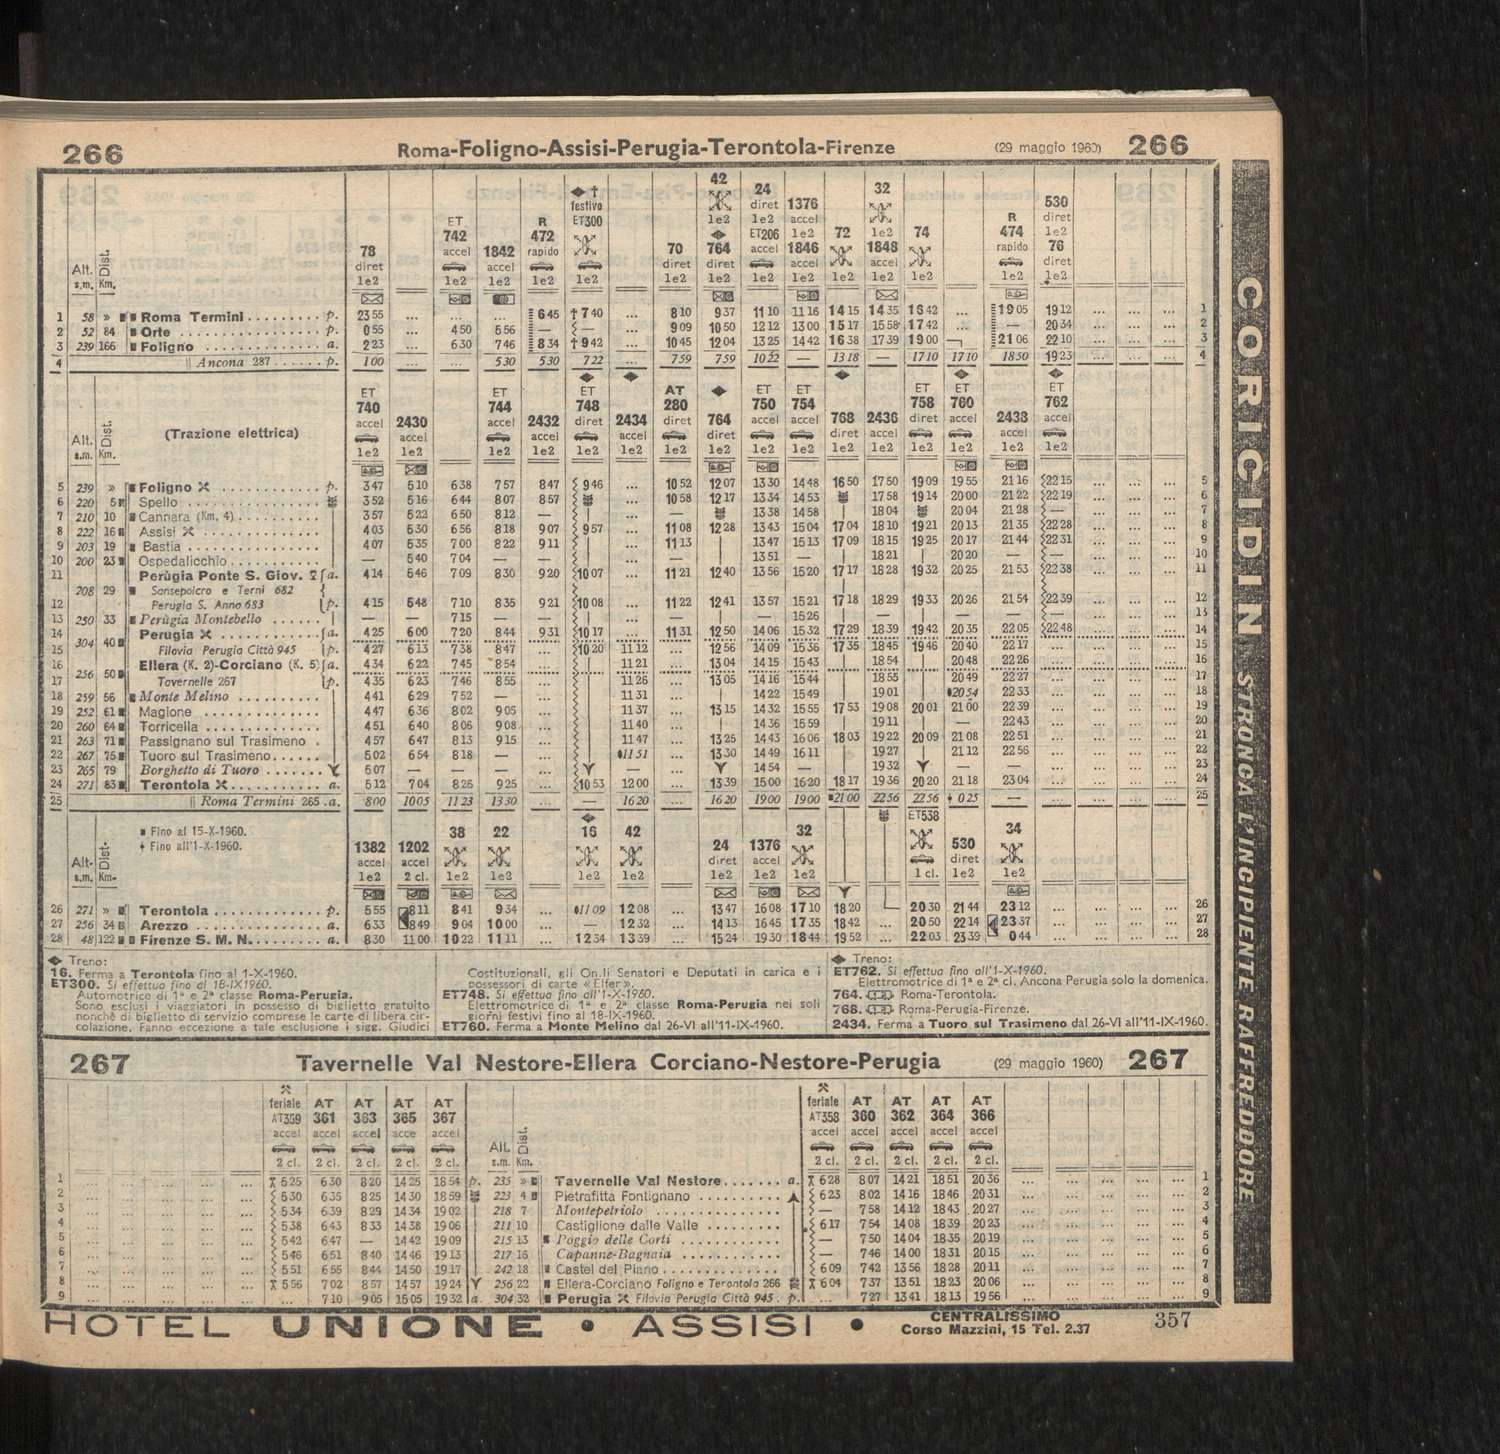 266 Roma-Foligno-Assisi-Perugia-Terontola-Firenze (29 maggio 1960) 266
42
festivo 24 32 530
ET ET300 1e2 diret 1376 diret
742 R 1e2 accel R 1e2
78 accel 1842 472 70 764 ET206 1e2 72 1e2 74 474 76
diret accel rapido diret diret accel 1846 1848 rapido diret
1e2 1e2 1e2 1e2 1e2 1e2 1e2 1e2 1e2 1e2 1e2 1e2 1e2 1e2
Alt. s.m. Dist. Km.
1 58 » Roma Termini p. 23 55 ... ... ... 6 45 † 7 40 ... 8 10 9 37 11 10 11 16 14 15 14 35 16 42 ... 19 05 19 12 1
2 52 84 Orte p. 0 55 ... 4 50 6 56 — — ... 9 09 10 50 12 12 13 00 15 17 15 58 17 42 ... — 20 34 2
3 239 166 Foligno a. 2 23 ... 6 30 7 46 8 34 † 9 42 ... 10 45 12 04 13 25 14 42 16 38 17 39 19 00 21 06 22 10 3
4 Ancona 287 p. 1 00 ... ... 5 30 5 30 7 22 ... 7 59 7 59 10 22 — 13 18 — 17 10 17 10 18 50 19 23 ... ... ... 4
ET ET ET AT ET ET ET ET ET
740 2430 744 2432 748 2434 280 764 750 754 768 2436 758 760 2438 762
accel accel accel accel diret accel diret diret accel accel diret accel diret accel accel accel
1e2 1e2 1e2 1e2 1e2 1e2 1e2 1e2 1e2 1e2 1e2 1e2 1e2 1e2 1e2 1e2
Alt. s.m. Dist. Km. (Trazione elettrica)
5 239 » Foligno p. 3 47 5 10 6 38 7 57 8 47 9 46 ... 10 52 12 07 13 30 14 48 16 50 17 50 19 09 19 55 21 16 22 15 ... ... ... 5
6 220 5 Spello 3 52 5 16 6 44 8 07 8 57 ... 10 58 12 17 13 34 14 53 17 58 19 14 20 00 21 22 22 19 ... ... ... 6
7 210 10 Cannara (Km. 4) 3 57 5 22 6 50 8 12 — ... — 13 38 14 58 18 04 20 04 21 28 — ... ... ... 7
8 222 16 Assisi 4 03 5 30 6 56 8 18 9 07 9 57 ... 11 08 12 28 13 43 15 04 17 04 18 10 19 21 20 13 21 35 22 28 ... ... ... 8
9 203 19 Bastia 4 07 5 35 7 00 8 22 9 11 ... 11 13 13 47 15 13 17 09 18 15 19 25 20 17 21 44 22 31 ... ... ... 9
10 200 23 Ospedalicchio — 5 40 7 04 — — ... — 13 51 — 18 21 20 20 — — ... ... ... 10
11 Perùgia Ponte S. Giov. a. 4 14 5 46 7 09 8 30 9 20 10 07 ... 11 21 12 40 13 56 15 20 17 17 18 28 19 32 20 25 21 53 22 38 ... ... ... 11
208 29 Sansepolcro e Terni 682
12 Perugia S. Anna 683 p. 4 15 5 48 7 10 8 35 9 21 10 08 ... 11 22 12 41 13 57 15 21 17 18 18 29 19 33 20 26 21 54 22 39 ... ... ... 12
13 250 33 Perùgia Montebello — — 7 15 — — ... — — 15 26 — — — — ... ... ... 13
14 304 40 Perugia a. 4 25 6 00 7 20 8 44 9 31 10 17 ... 11 31 12 50 14 06 15 32 17 29 18 39 19 42 20 35 22 05 22 48 ... ... ... 14
15 Filovia Perugia Città 945 p. 4 27 6 13 7 38 8 47 ... 10 20 11 12 ... 12 56 14 09 15 36 17 35 18 45 19 46 20 40 22 17 ... ... ... ... 15
16 Ellera (K. 2)-Corciano (K. 5) a. 4 34 6 22 7 45 8 54 ... 11 21 ... 13 04 14 15 15 43 18 54 20 48 22 26 ... ... ... ... 16
17 256 50 Tavernelle 267 p. 4 35 6 23 7 46 8 55 ... 11 26 ... 13 05 14 16 15 44 18 55 20 49 22 27 ... ... ... ... 17
18 259 56 Monte Melino 4 41 6 29 7 52 — ... 11 31 ... 14 22 15 49 19 01 20 54 22 33 ... ... ... ... 18
19 252 61 Magione 4 47 6 36 8 02 9 05 ... 11 37 ... 13 15 14 32 15 55 17 53 19 08 20 01 21 00 22 39 ... ... ... ... 19
20 260 64 Torricella 4 51 6 40 8 06 9 08 ... 11 40 ... 14 36 15 59 19 11 — 22 43 ... ... ... ... 20
21 263 71 Passignano sul Trasimeno 4 57 6 47 8 13 9 15 ... 11 47 ... 13 25 14 43 16 06 18 03 19 22 20 09 21 08 22 51 ... ... ... ... 21
22 267 75 Tuoro sul Trasimeno 5 02 6 54 8 18 — ... 11 51 ... 13 30 14 49 16 11 19 27 21 12 22 56 ... ... ... ... 22
23 265 79 Borghetto di Tuoro 5 07 — — — ... — ... 14 54 — 19 32 — — ... ... ... ... 23
24 271 83 Terontola a. 5 12 7 04 8 26 9 25 ... 10 53 12 00 ... 13 39 15 00 16 20 18 17 19 36 20 20 21 18 23 04 ... ... ... ... 24
25 Roma Termini 265 a. 8 00 10 05 11 23 13 30 ... — 16 20 ... 16 20 19 00 19 00 21 00 22 56 22 56 0 25 — ... ... ... ... 25
Fino al 15-X-1960.
Fino all'1-X-1960.
38 22 16 42 24 1376 32 ET538 530 34
1382 1202 diret accel diret
accel accel
1e2 2 cl. 1e2 1e2 1e2 1e2 1e2 1e2 1e2 1 cl. 1e2 1e2
Alt- s.m. Dist- Km-
26 271 » Terontola p. 5 55 8 11 8 41 9 34 ... 11 09 12 08 ... 13 47 16 08 17 10 18 20 20 30 21 44 23 12 ... ... ... ... 26
27 256 34 Arezzo a. 6 33 8 49 9 04 10 00 ... — 12 32 ... 14 13 16 45 17 35 18 42 ... 20 50 22 14 23 37 ... ... ... ... 27
28 48 122 Firenze S. M. N. a. 8 30 11 00 10 22 11 11 ... 12 34 13 39 ... 15 24 19 30 18 44 19 52 ... 22 03 23 39 0 44 ... ... ... ... 28
Treno:
16. Ferma a Terontola fino al 1-X-1960.
ET300. Si effettua fino al 18-IX-1960.
Automotrice di 1ª e 2ª classe Roma-Perugia.
Sono esclusi i viaggiatori in possesso di biglietto gratuito
nonchè di biglietto di servizio comprese le carte di libera cir-
colazione. Fanno eccezione a tale esclusione i sigg. Giudici
Costituzionali, gli On.li Senatori e Deputati in carica e i
possessori di carte «Elfer».
ET748. Si effettua fino all'1-X-1960.
Elettromotrice di 1ª e 2ª classe Roma-Perugia nei soli
giorni festivi fino al 18-IX-1960.
ET760. Ferma a Monte Melino dal 26-VI all'11-IX-1960.
Treno:
ET762. Si effettua fino all'1-X-1960.
Elettromotrice di 1ª e 2ª cl. Ancona Perugia solo la domenica.
764. Roma-Terontola.
768. Roma-Perugia-Firenze.
2434. Ferma a Tuoro sul Trasimeno dal 26-VI all'11-IX-1960.
267 Tavernelle Val Nestore-Ellera Corciano-Nestore-Perugia (29 maggio 1960) 267
feriale AT AT AT AT feriale AT AT AT AT
AT359 361 363 365 367 AT358 360 362 364 366
accel accel accel acce accel accel accel accel accel accel
2 cl. 2 cl. 2 cl. 2 cl. 2 cl. Alt. s.m. Dist. Km. 2 cl. 2 cl. 2 cl. 2 cl. 2 cl.
1 5 25 6 30 8 20 14 25 18 54 p. 235 » Tavernelle Val Nestore a. 6 28 8 07 14 21 18 51 20 36 1
2 5 30 6 35 8 25 14 30 18 59 223 4 Pietrafitta Fontignano 6 23 8 02 14 16 18 46 20 31 2
3 5 34 6 39 8 29 14 34 19 02 218 7 Montepetriolo — 7 58 14 12 18 43 20 27 3
4 5 38 6 43 8 33 14 38 19 06 211 10 Castiglione dalle Valle 6 17 7 54 14 08 18 39 20 23 4
5 5 42 6 47 — 14 42 19 09 215 13 Poggio delle Corti — 7 50 14 04 18 35 20 19 5
6 5 46 6 51 8 40 14 46 19 13 217 16 Capanne-Bagnaia — 7 46 14 00 18 31 20 15 6
7 5 51 6 55 8 44 14 50 19 17 242 18 Castel del Piano 6 09 7 42 13 56 18 28 20 11 7
8 5 56 7 02 8 57 14 57 19 24 256 22 Ellera-Corciano Foligno e Terontola 266 6 04 7 37 13 51 18 23 20 06 8
9 ... 7 10 9 05 15 05 19 32 a. 304 32 Perugia Filovia Perugia Città 945 p. ... 7 27 13 41 18 13 19 56 9
HOTEL UNIONE • ASSISI • CENTRALISSIMO
Corso Mazzini, 15 Tel. 2.37
357
CORICIDIN STRONCA L'INCIPIENTE RAFFREDDORE